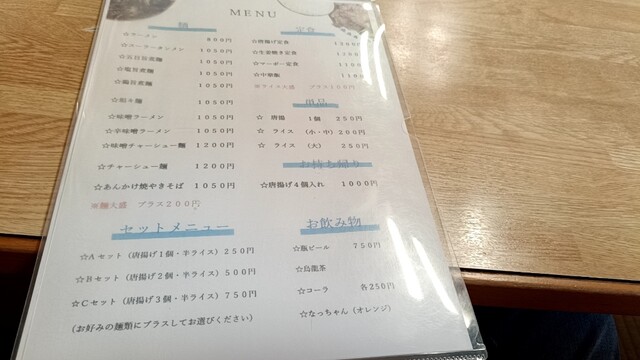 MENU
麺
☆ラーメン 800円
☆ニーラーカンメン 1050円
☆五目旨煮麺 1050円
☆塩旨煮麺 1050円
☆醤旨煮麺 1050円
☆坦々麺 1050円
☆味噌ラーメン 1050円
☆辛味噌ラーメン 1050円
☆味噌チャーシュー麺 1200円
☆チャーシュー麺 1200円
☆あんかけ焼やきそば 1050円
※麺大盛 プラス200円
セットメニュー
☆Aセット（唐揚げ1個・半ライス）250円
☆Bセット（唐揚げ2個・半ライス）500円
☆Cセット（唐揚げ3個・半ライス）750円
（お好みの麺類にプラスしてお選びください）
定食
☆唐揚げ定食
☆生姜焼き定食
☆マーボー定食
☆中華飯
※ライス大盛 プラス100円
単品
☆ 唐揚 1個 250円
☆ ライス （小・中）200円
☆ ライス （大） 250円
お持ち帰り
☆唐揚げ4個入れ 1000円
お飲み物
☆瓶ビール 750円
☆烏龍茶
☆コーラ 各250円
☆なっちゃん（オレンジ）